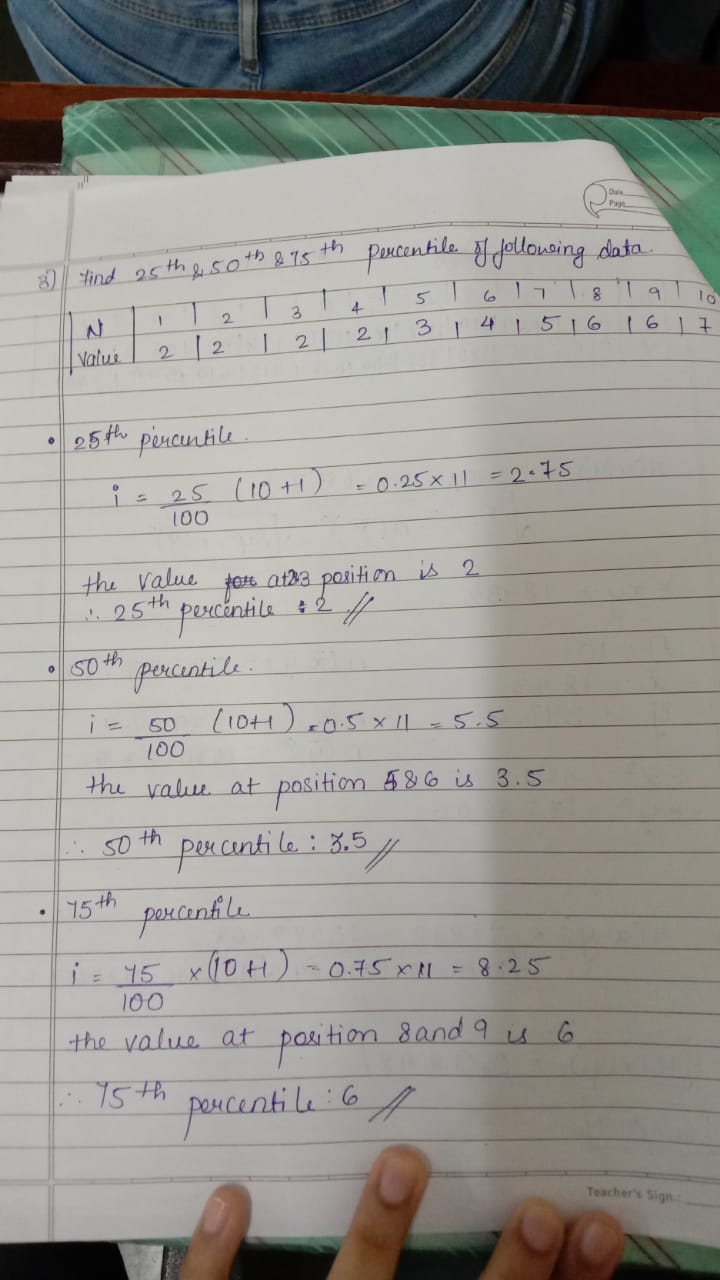 Date
Page
3) Find 25th & 50th & 75th percentile of following data.
N 1 2 3 4 5 6 7 8 9 10
Value 2 2 2 2 3 4 5 6 6 7
• 25th percentile.
i = 25/100 (10+1) = 0.25 × 11 = 2.75
the value at 2&3 position is 2
∴ 25th percentile : 2 //
• 50th percentile.
i = 50/100 (10+1) = 0.5 × 11 = 5.5
the value at position 5&6 is 3.5
∴ 50th percentile : 3.5 //
• 75th percentile
i = 75/100 × (10+1) = 0.75 × 11 = 8.25
the value at position 8 and 9 is 6
∴ 75th percentile : 6 //
Teacher's Sign.: